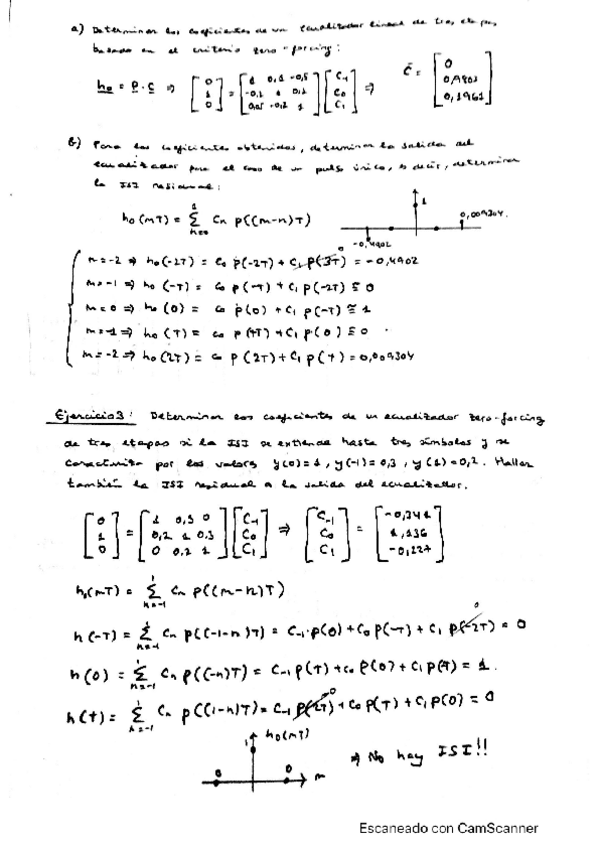 a) Determinar los coeficientes de un ecualizador lineal de tres etapas
basado en el criterio zero-forcing:
h₀ = P · C ⇒ [0 1 0] = [1 0,1 -0,5; -0,2 1 0,1; 0,05 -0,2 1] [C-1 C0 C1] ⇒ C̄ = [0 0,9803 0,1961]
b) Para los coeficientes obtenidos, determinar la salida del
ecualizador para el caso de un pulso único, es decir, determinar
la ISI residual:
h₀(mT) = Σ Cn p((m-n)T)
1
0,009304.
-0,4902
m=-2 ⇒ h₀(-2T) = C0 p(-2T) + C1 p(3T) = -0,4902
m=-1 ⇒ h₀(-T) = C0 p(-T) + C1 p(-2T) ≅ 0
m=0 ⇒ h₀(0) = C0 p(0) + C1 p(-T) ≅ 1
m=-1 ⇒ h₀(T) = C0 p(+T) + C1 p(0) ≅ 0
m=-2 ⇒ h₀(2T) = C0 p(2T) + C1 p(T) = 0,009304
Ejercicio3: Determinar los coeficientes de un ecualizador zero-forcing
de tres etapas si la ISI se extiende hasta tres símbolos y se
caracteriza por los valores y(0)=1, y(-1)=0,3, y(1)=0,2. Hallar
también la ISI residual a la salida del ecualizador.
[0 1 0] = [1 0,3 0; 0,2 1 0,3; 0 0,2 1] [C-1 C0 C1] ⇒ [C-1 C0 C1] = [-0,341 1,136 -0,227]
h₀(mT) = Σ n=-1 1 Cn p((m-n)T)
h(-T) = Σ n=-1 1 Cn p((-1-n)T) = C-1·p(0) + C0 p(-T) + C1 p(-2T) = 0
h(0) = Σ n=-1 1 Cn p((-n)T) = C-1 p(T) + C0 p(0) + C1 p(-T) = 1.
h(T) = Σ n=-1 1 Cn p((1-n)T) = C-1 p(2T) + C0 p(T) + C1 p(0) = 0
1 h₀(mT)
⇒ No hay ISI!!
0 0 m
Escaneado con CamScanner